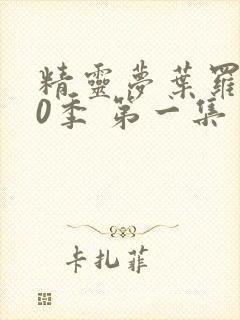 精靈夢葉羅
0季 第一集
卡扎菲